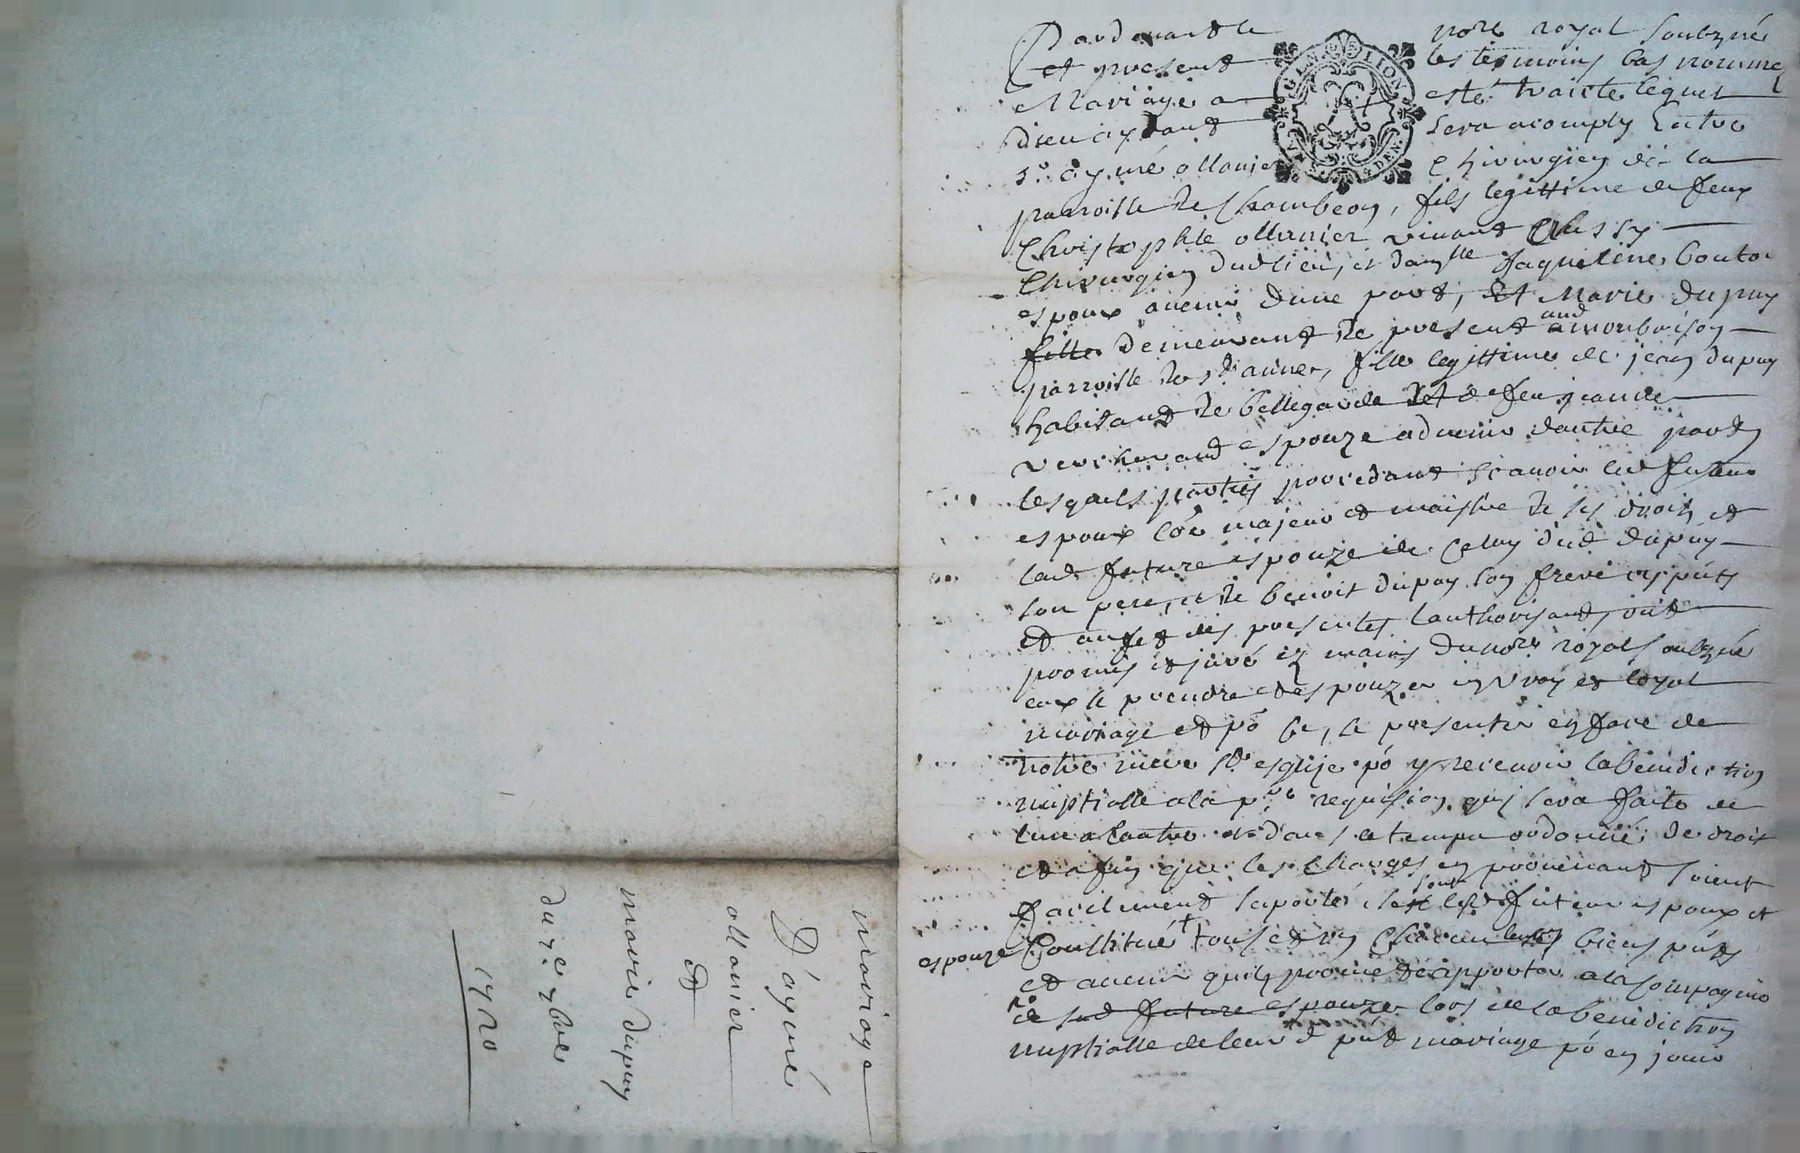 Pardevant le nore royal soubzné
et present les tesmoins bas nommez
Mariage a esté traicté lequel
dieu aydant sera acomply Entre
Sr aymé ollanier Chirurgien de la
parroisse de Chambeon, fils legittime de feux
Christophle ollanier vivant aussy
Chirurgien dudlieu, et damlle Jaqueline
espoux avenir dune part, Et Marie dupuy
fille demeurant de present aud monboison
parroisse de st anne, fille legittime de jean dupuy
habitant de bellegarde et de feu jeanne
espouze advenir dautre part
lesquels parties procedant scavoir led futur
espoux coe majeur et maistre de ses droits et
lad future espouze de celuy dud dupuy
son pere, et de benoit dupuy son frere cy puts
et aufet des presentes lauthorisant, ont
promis et juré ez mains dunore royal soubzné
eux se prendre et espouzer en vray et loyal
mariage et po ce, se presenter en face de
notre mere ste esglise po y recevoir la benediction
nuptialle a la pre requision quj sera faite de
lune a lautre et dans le temps ordonné de droit
et afin que les Charges en provenant soient
facilement suporté sont led futur espoux et
espouze Constitué + tous et un chacun leurs biens puts
et avenir quils promet desapporter a la compagnie
de sad future espouze lors de la benediction
nuptialle de leur d put mariage po en jouir
mariage
D'aymé
ollanier
et
marie dupuy
du xe xbre
1720
GEN LION